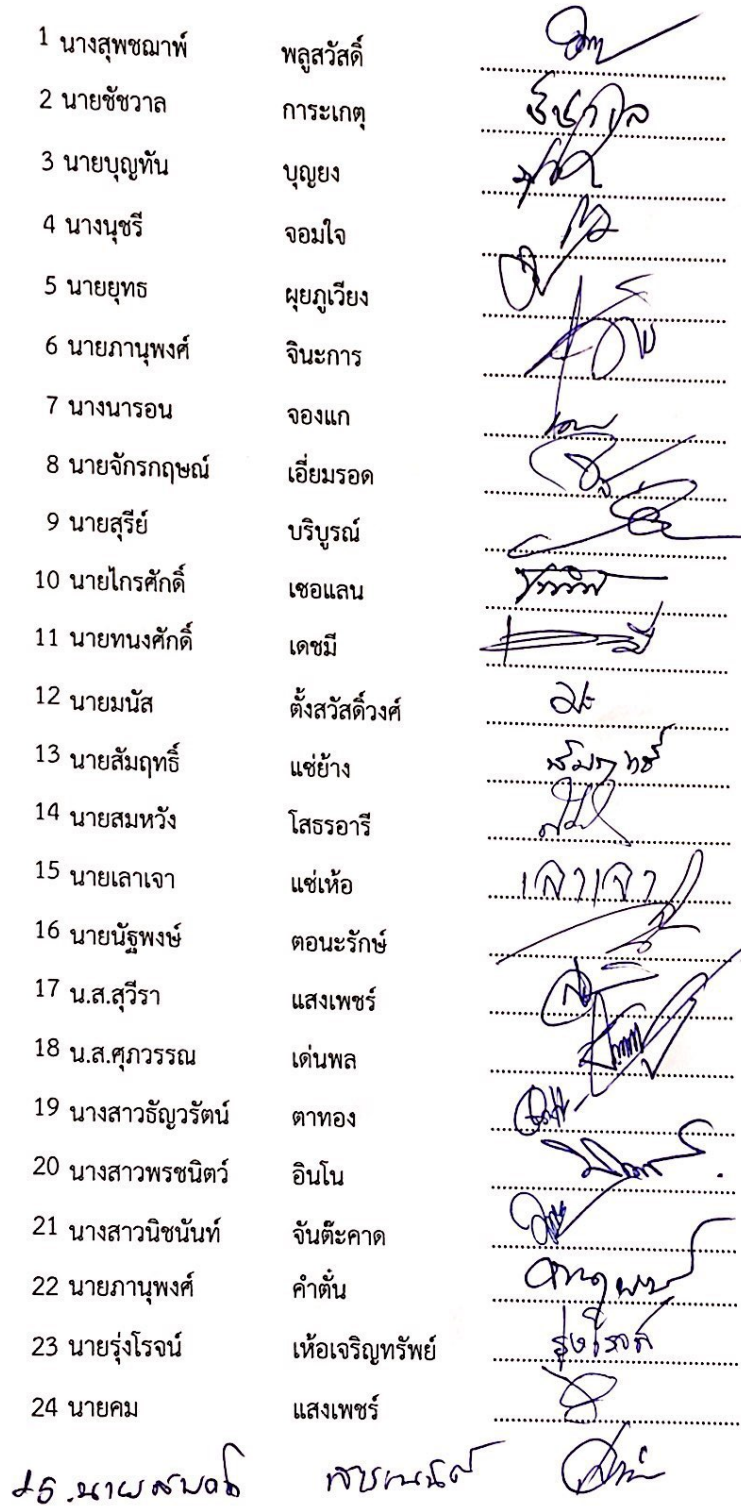 1 นางสุพชฌาพ์ พลูสวัสดิ์
2 นายชัชวาล การะเกตุ ชัชวาล
3 นายบุญทัน บุญยง
4 นางนุชรี จอมใจ
5 นายยุทธ ผุยภูเวียง
6 นายภานุพงศ์ จินะการ
7 นางนารอน จองแก
8 นายจักรกฤษณ์ เอี่ยมรอด
9 นายสุรีย์ บริบูรณ์
10 นายไกรศักดิ์ เชอแลน
11 นายทนงศักดิ์ เดชมี
12 นายมนัส ตั้งสวัสดิ์วงศ์
13 นายสัมฤทธิ์ แซ่ย้าง สัมฤทธิ์
14 นายสมหวัง โสธรอารี
15 นายเลาเจา แซ่เห้อ เลาเจา
16 นายนัฐพงษ์ ตอนะรักษ์
17 น.ส.สุวีรา แสงเพชร์
18 น.ส.ศุภวรรณ เด่นพล
19 นางสาวธัญวรัตน์ ตาทอง
20 นางสาวพรชนิตว์ อินโน
21 นางสาวนิชนันท์ จันต๊ะคาด
22 นายภานุพงศ์ คำตั๋น ภานุพงศ์
23 นายรุ่งโรจน์ เห้อเจริญทรัพย์ รุ่งโรจน์
24 นายคม แสงเพชร์
25.นาย